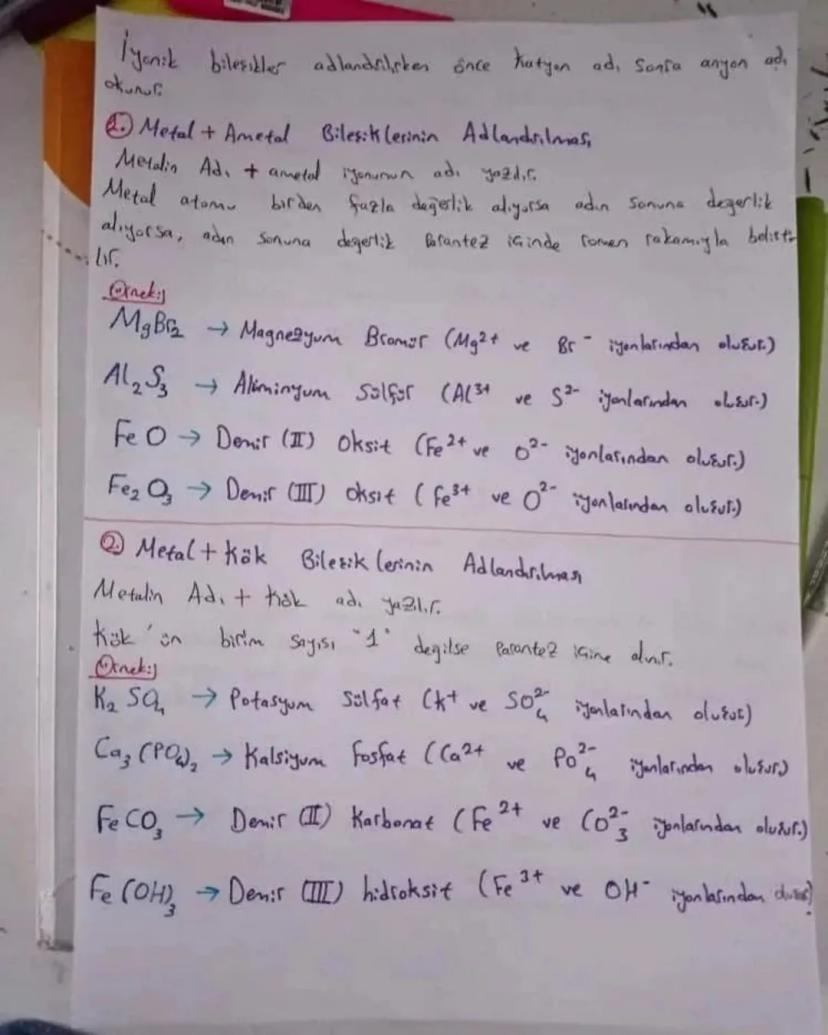 İyonik bileşikler adlandırılırken önce katyon adı sonra anyon adı
okunur.
1. Metal + Ametal Bileşiklerinin Adlandırılması
Metalin Adı + ametal iyonunun adı yazılır.
Metal atomu birden fazla değerlik alıyorsa adın sonuna değerlik
alıyorsa, adın sonuna değerlik Parantez içinde romen rakamıyla belirti-
lir.
Örnek:
MgBr2 → Magnezyum Bromür (Mg2+ ve Br- iyonlarından oluşur.)
Al2S3 → Alüminyum Sülfür (Al3+ ve S2- iyonlarından oluşur.)
FeO → Demir (II) Oksit (Fe2+ ve O2- iyonlarından oluşur.)
Fe2O3 → Demir (III) oksit (Fe3+ ve O2- iyonlarından oluşur.)
2. Metal + Kök Bileşiklerinin Adlandırılması
Metalin Adı + Kök adı yazılır.
Kök'ün birim sayısı "1" değilse Parantez içine alınır.
Örnek:
K2SO4 → Potasyum Sülfat (K+ ve SO4 2- iyonlarından oluşur)
Ca3(PO4)2 → Kalsiyum Fosfat (Ca2+ ve Po4 2- iyonlarından oluşur.)
FeCO3 → Demir (II) Karbonat (Fe2+ ve CO3 2- iyonlarından oluşur.)
Fe(OH)3 → Demir (III) hidroksit (Fe3+ ve OH- iyonlarından oluşur)